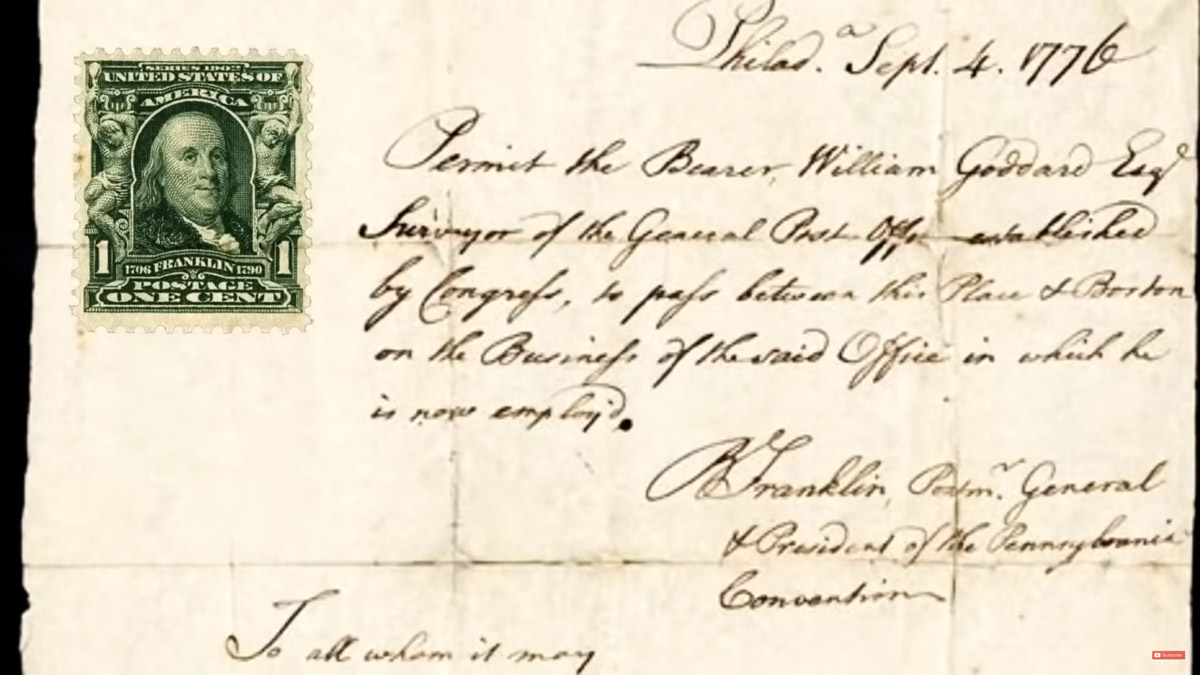 SERIES 1902
UNITED STATES OF
AMERICA
1 1706 FRANKLIN 1790 1
POSTAGE
ONE CENT
Philad.ª Sept. 4. 1776
Permit the Bearer, William Goddard Esqr
Surveyor of the General Post Office established
by Congress, to pass between this Place & Boston
on the Business of the said Office in which he
is now employ'd.
B Franklin, Postmr. General
& President of the Pennsylvania
Convention
To all whom it may
Subscribe